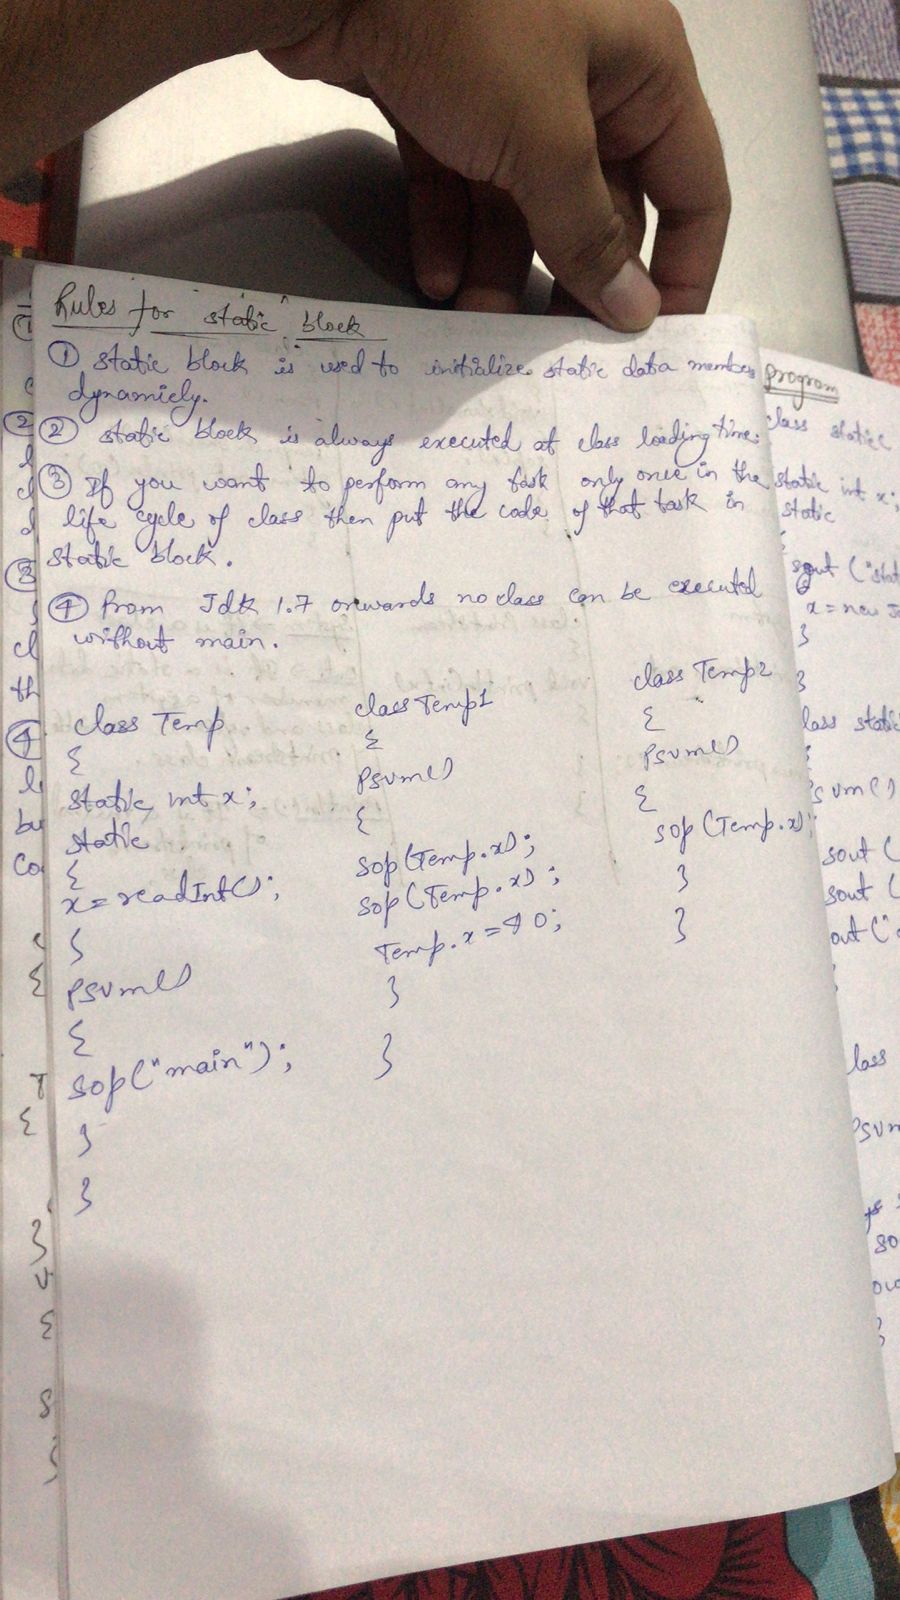 Rules for static block
① static block is used to initialize static data members
dynamicly.
② static block is always executed at class loading time.
③ If you want to perform any task only once in the
life cycle of class then put the code of that task in
static block.
④ From Jdk 1.7 onwards no class can be executed
without main.
class Temp
{
static int x;
static
{
x = readInt();
}
psvm()
{
sop("main");
}
}
class Temp1
{
psvm()
{
sop(Temp.x);
sop(Temp.x);
Temp.x = 40;
}
}
class Temp2
{
psvm()
{
sop(Temp.x);
}
}
program
class static
static int x;
static
{
sout ("stat
x = new
}
}
class static
{
psvm()
sout (
sout (
out ("
lass
psvm
so
}